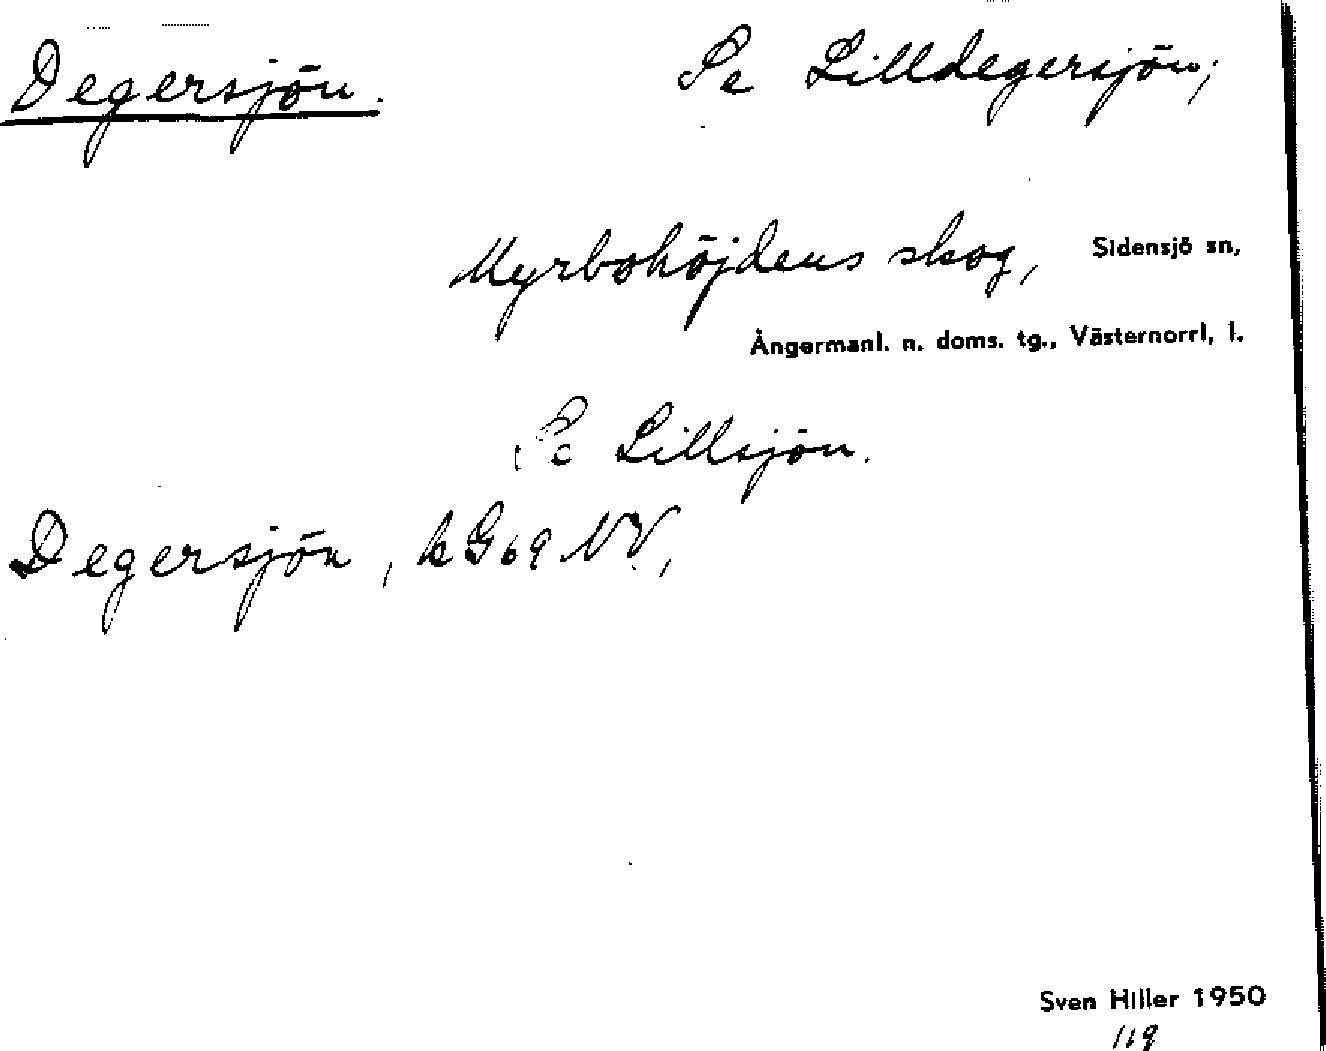 Degersjön. Se Lilldegersjön,
Myrbohöjdens skog, Sidensjö sn,
Ångermanl. n. doms. tg., Västernorrl. l.
Se Lillsjön.
Degersjön, k G69 NV,
Sven Hiller 1950
119